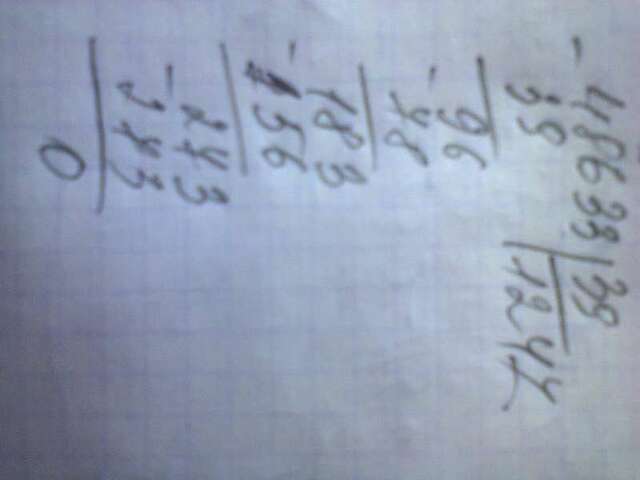 -48633|39
39 |1247
96
-78
183
-156
273
-273
0